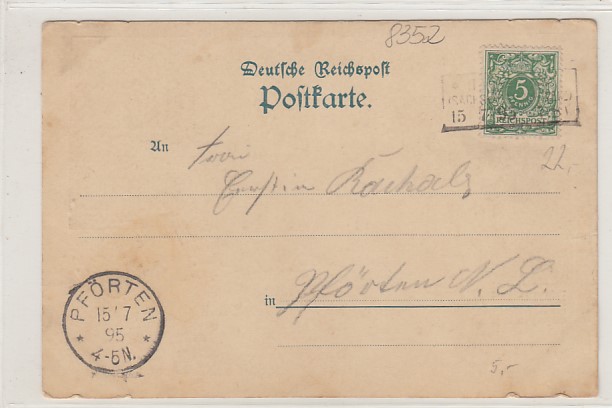 8352
Deutsche Reichspost
Postkarte.
5
REICHSPOST
15 7
An Frau
22,-
in Pförten N. L.
PFÖRTEN
15 7
95
4-5N.
5,-